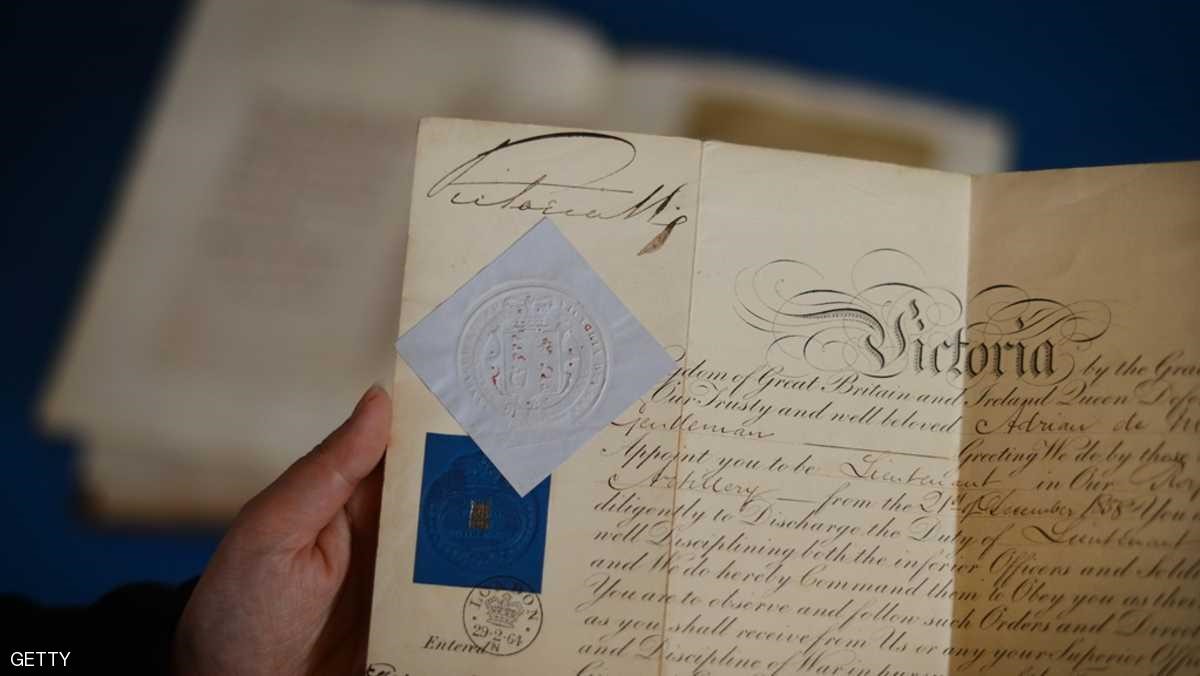 Victoria R.
Victoria by the
dom of Great Britain and Ireland Queen
Our Trusty and well beloved Adrian de
Gentleman Greeting We do by these
Appoint you to be Lieutenant in Our
Artillery — from the 21st of December You
diligently to Discharge the Duty of Lieutenant
well Disciplining both the inferior Officers and
and We do hereby Command them to Obey you as
You are to observe and follow such Orders and
as you shall receive from Us or any your Superior
and Discipline of War in
LONDON
29·2·64
Entered
GETTY